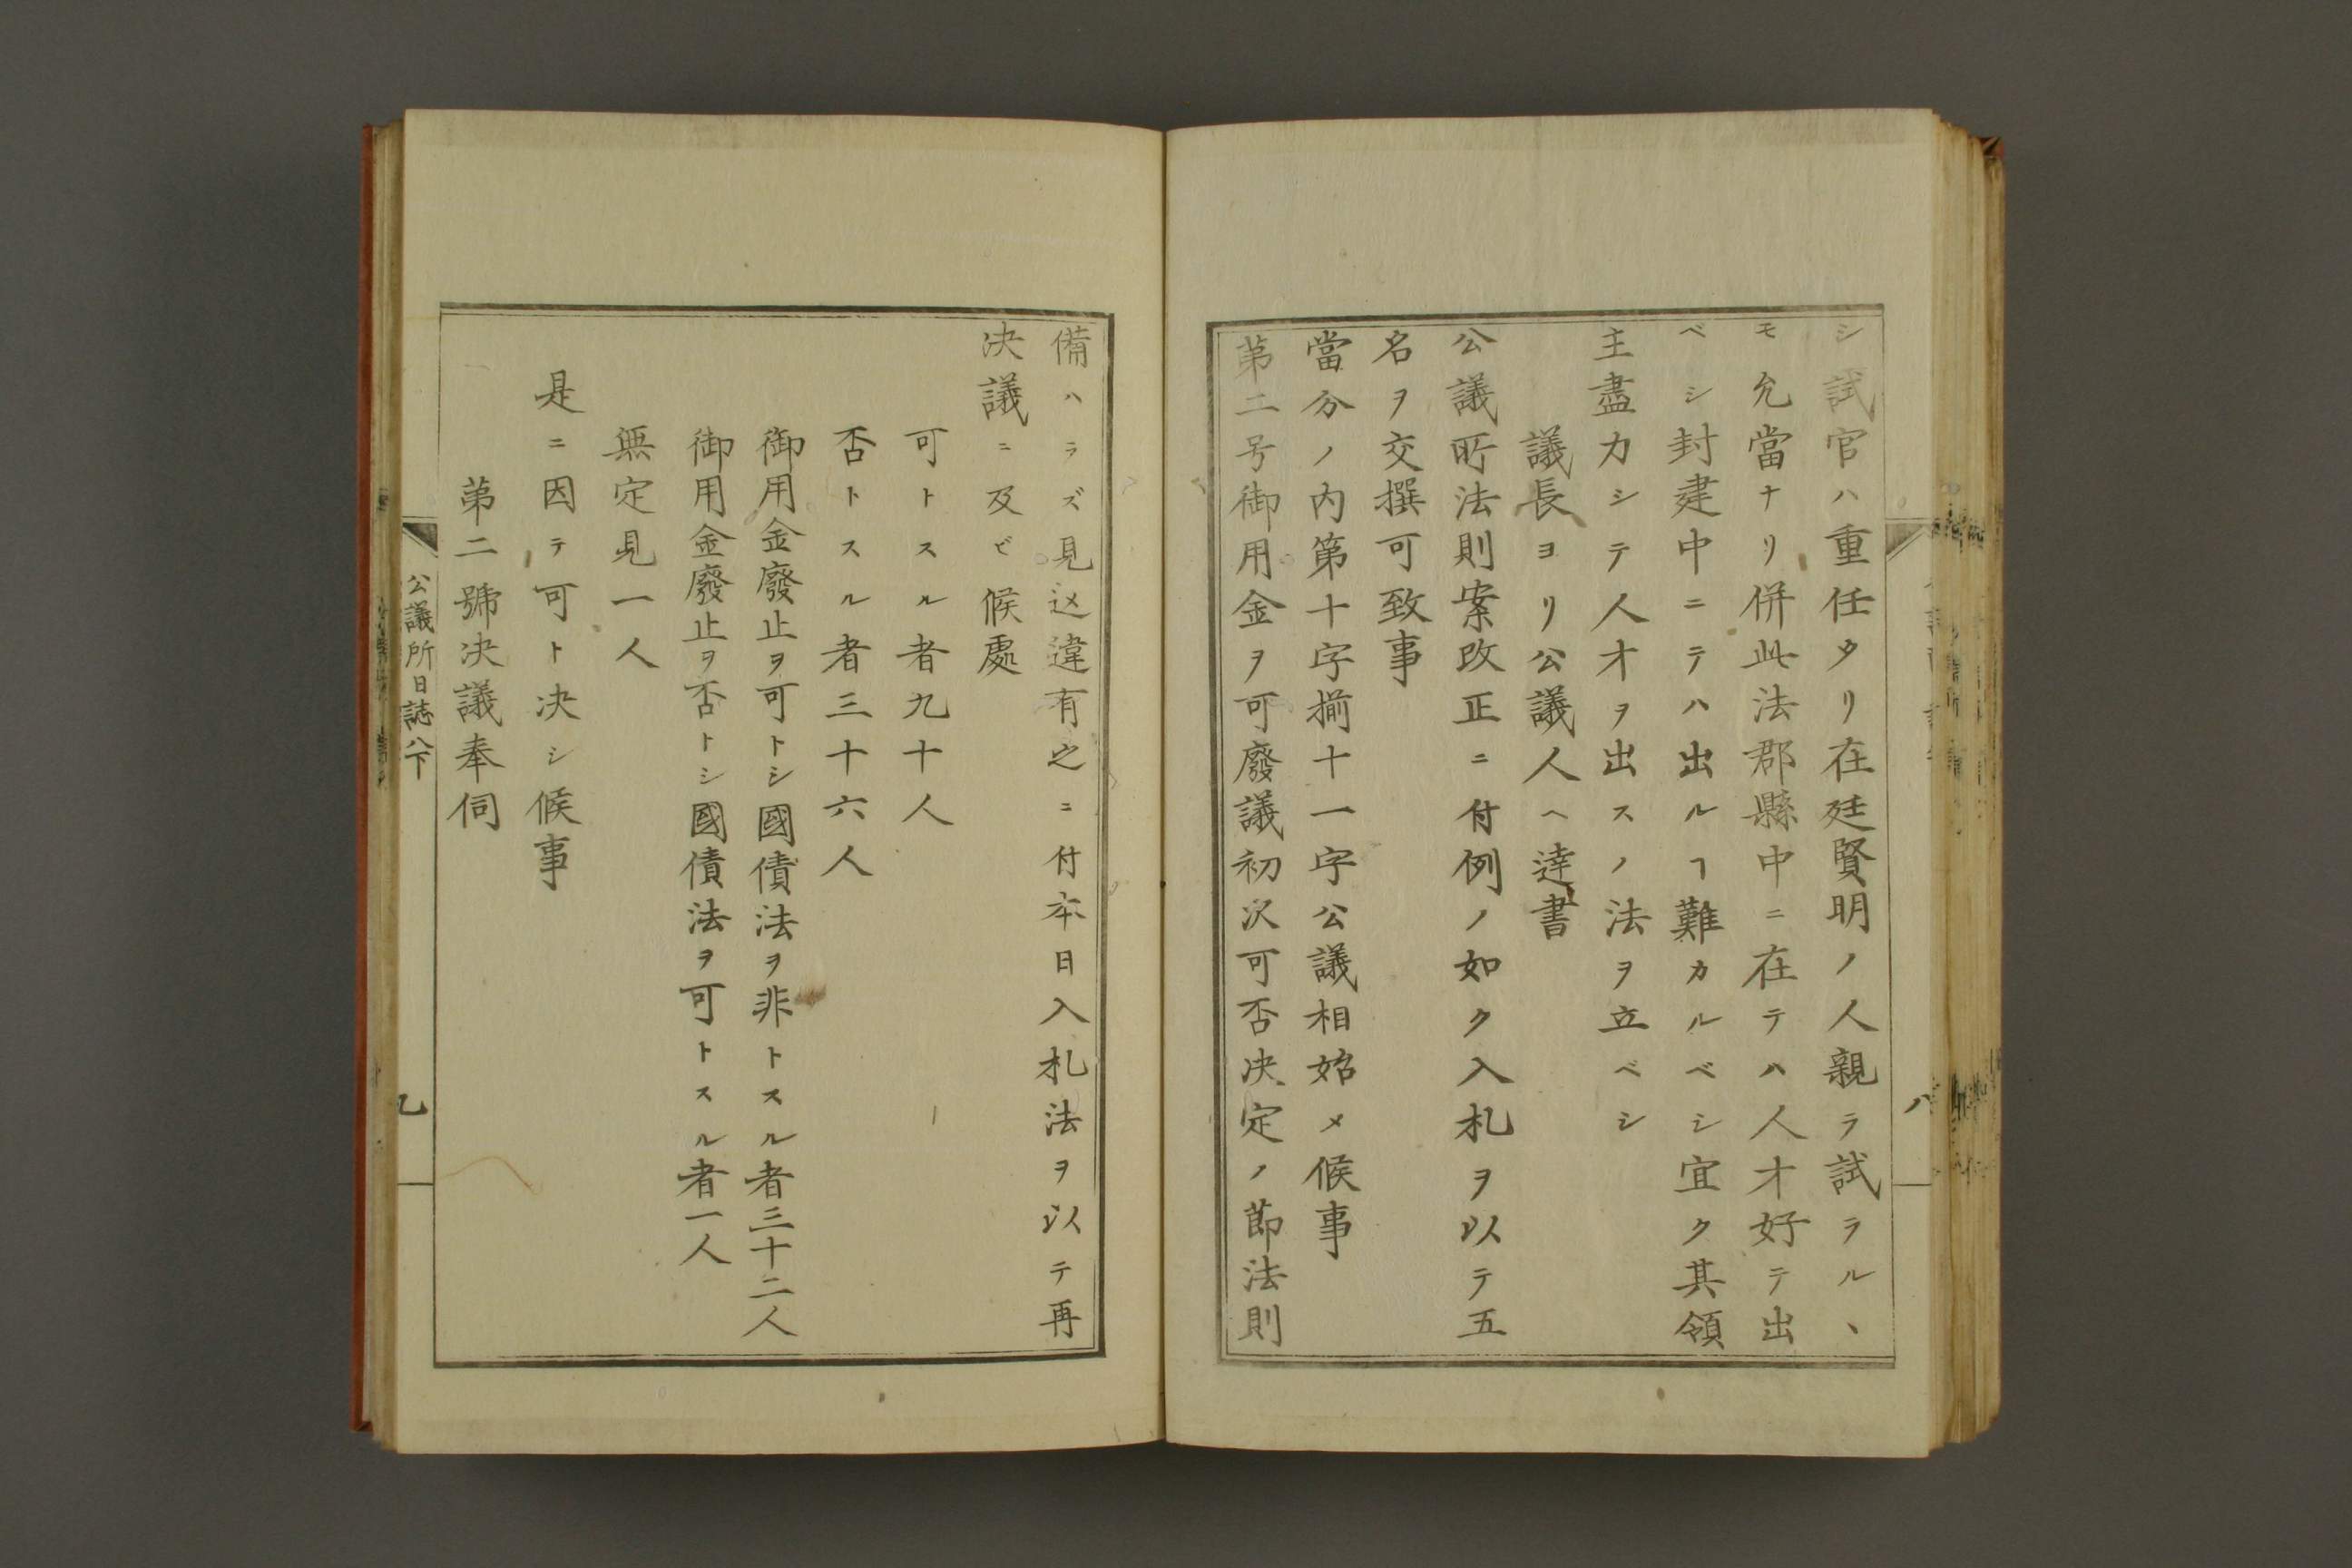 シ試官ハ重任タリ在廷賢明ノ人親ラ試ラルヽ
モ允當ナリ併此法郡縣中ニ在テハ人才好テ出
ベシ封建中ニテハ出ルヿ難カルベシ宜ク其領
主盡力シテ人才ヲ出スノ法ヲ立ベシ
議長ヨリ公議人ヘ達書
公議所法則案改正ニ付例ノ如ク入札ヲ以テ五
名ヲ交撰可致事
當分ノ内第十字揃十一字公議相始メ候事
第二号御用金ヲ可廢議初次可否决定ノ節法則
八
備ハラズ見込違有之ニ付本日入札法ヲ以テ再
决議ニ及ビ候處
可トスル者九十人
否トスル者三十六人
御用金廢止ヲ可トシ國債法ヲ非トスル者三十二人
御用金廢止ヲ否トシ國債法ヲ可トスル者一人
無定見一人
是ニ因テ可ト决シ候事
第二號决議奉伺
公議所日誌八下
九